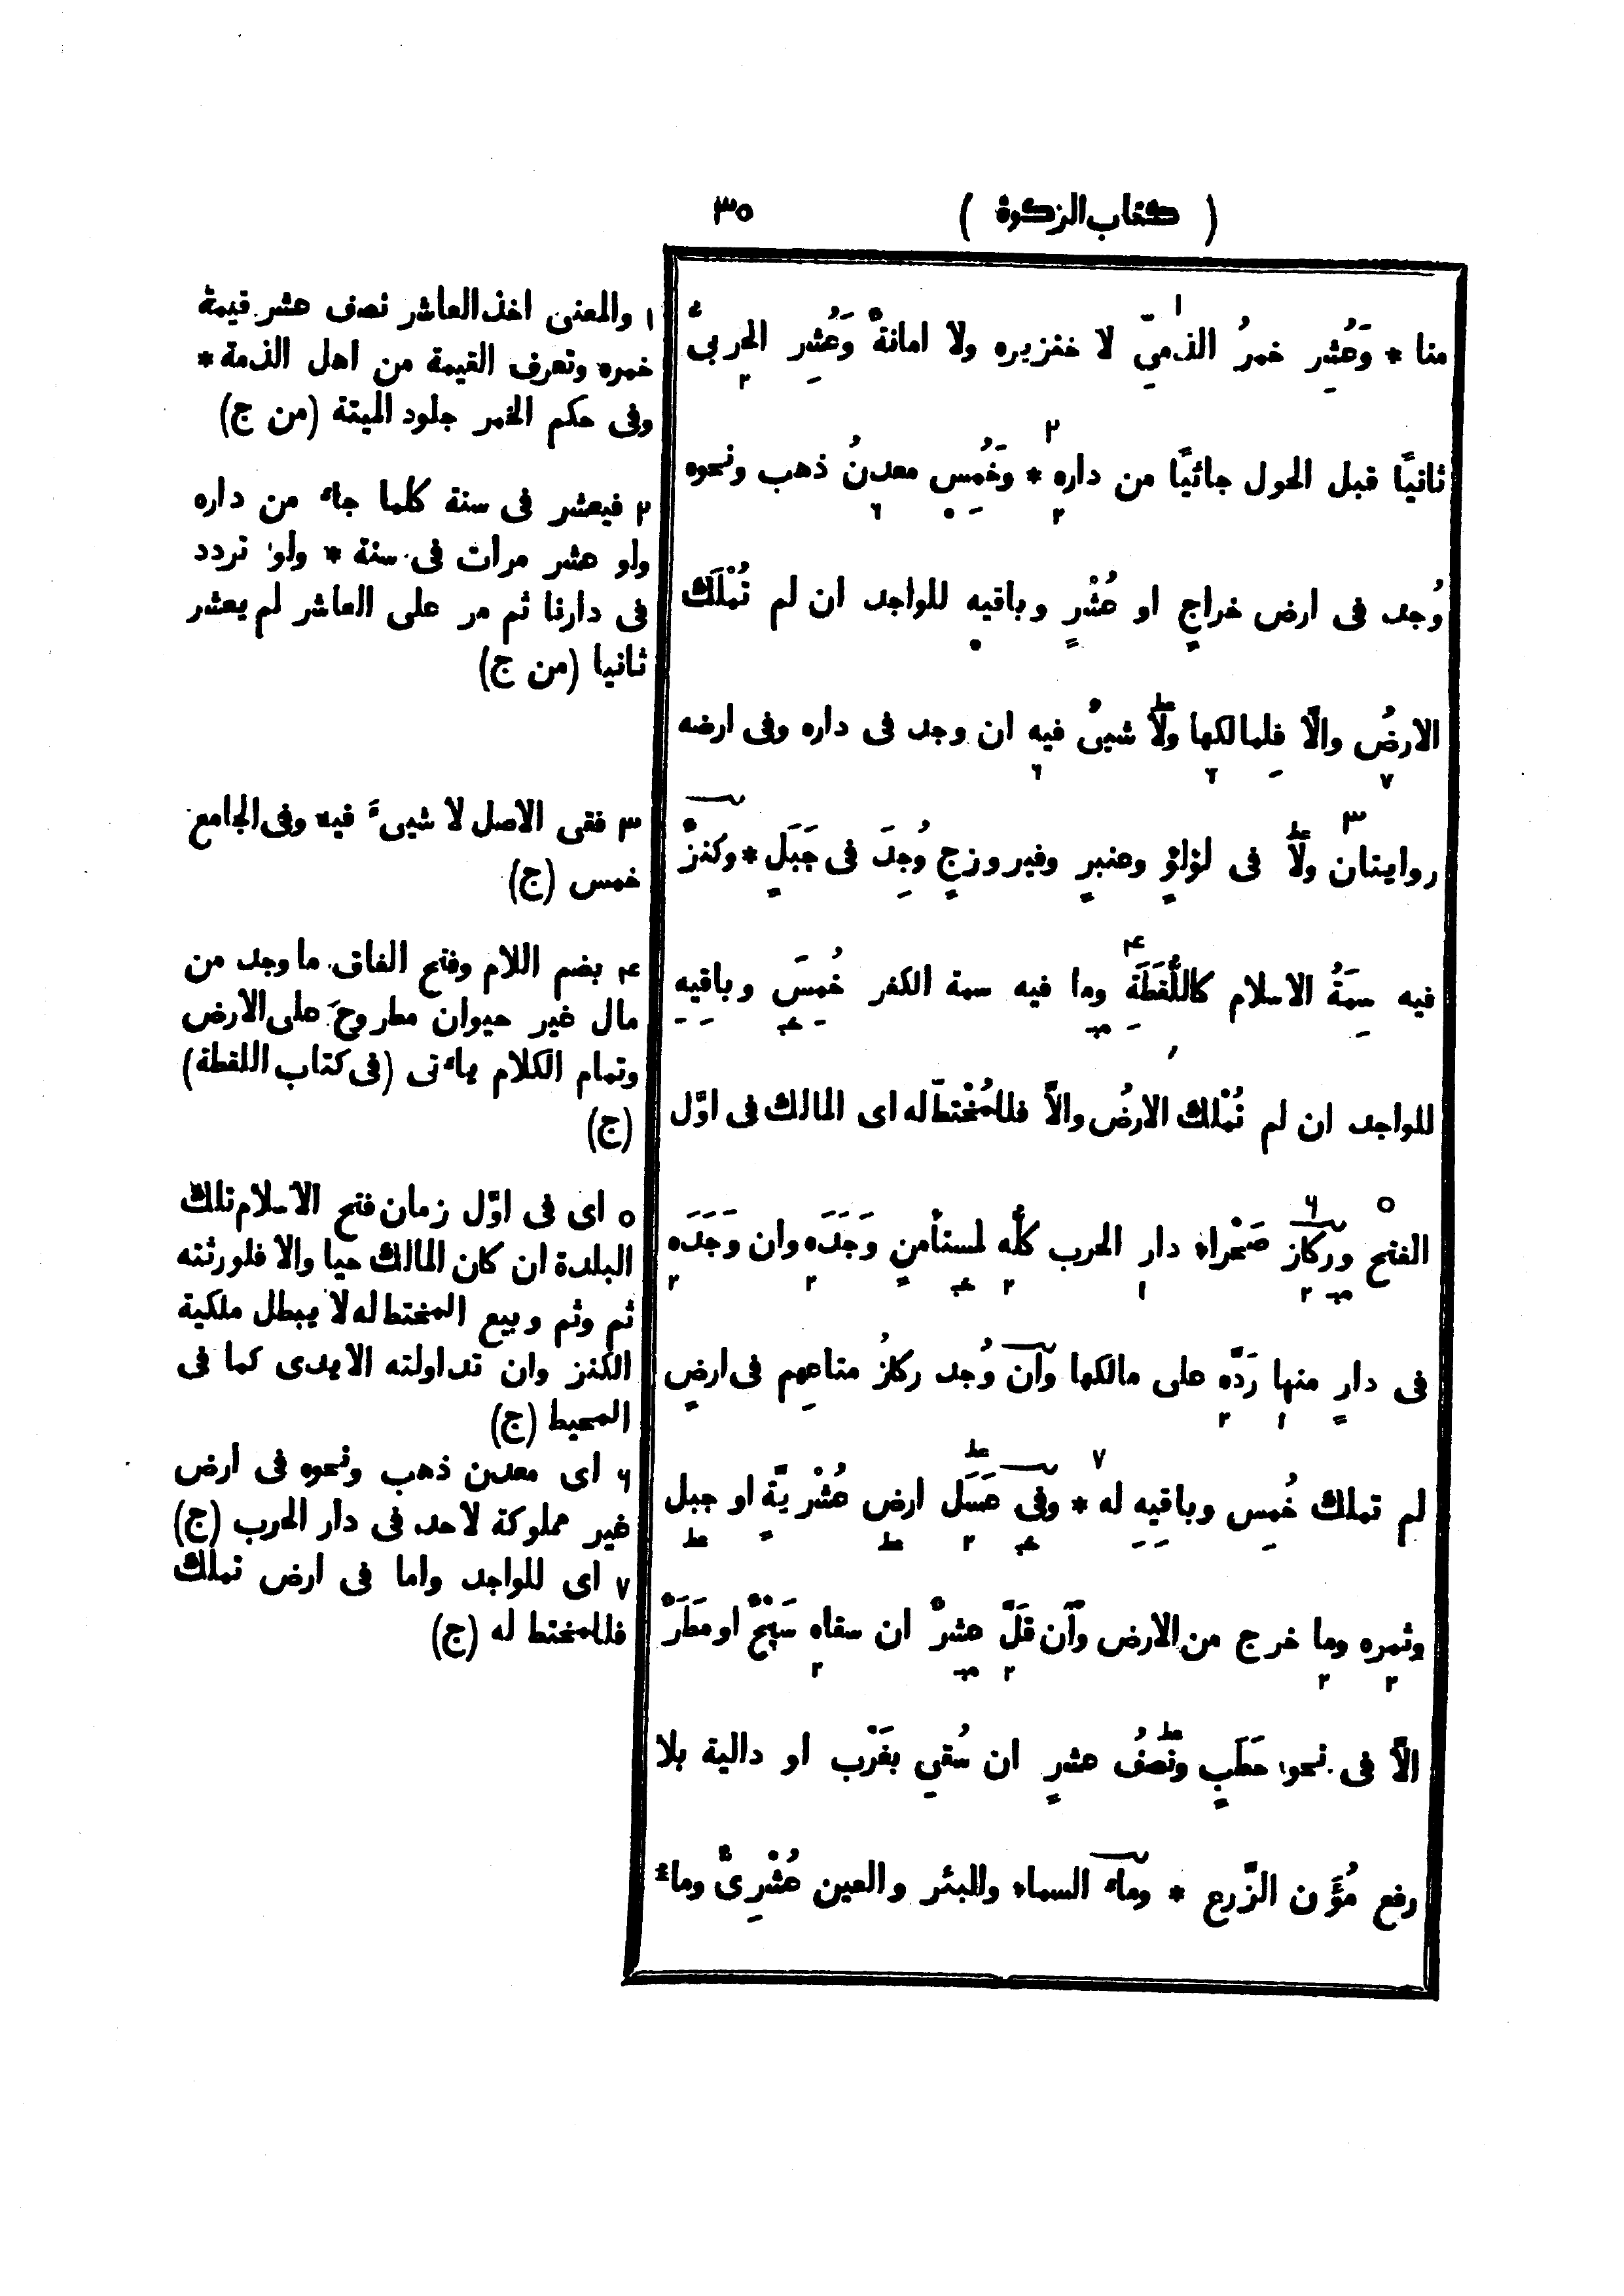 ( كتاب الزكوة ) ٣٥
منا * وَعُشِر خمرُ الذمىِّ لا خنزيره ولا امانةٌ وَعُشِر الحربىُّ
ثانيًا قبل الحول جائيًا من داره * وَخُمِس معدنُ ذهب ونحوه
وُجد فى ارض خراجٍ او عُشْرٍ وباقيه للواجد ان لم تُمْلَك
الارضُ والّا فلِمالكها ولَا شىءٌ فيه ان وجد فى داره وفى ارضه
روايتان ولَا فى لؤلؤٍ وعنبرٍ وفيروزجٍ وُجِدَ فى جَبَلٍ * وكنزٌ
فيه سِمَةُ الاسلام كاللُّقَطَةِ وما فيه سمة الكفر خُمِسَ وباقِيهِ
للواجد ان لم تُمْلك الارضُ والاَّ فللمُخْتطّ له اى المالك فى اوّل
الفتح وركاز صَحْراء دار الحرب كلُّه لمستأمنٍ وَجَدَه وان وَجَدَه
فى دارٍ منها رَدَّه على مالكها وان وُجد ركازُ متاعِهم فى ارضٍ
لم تملك خُمِس وباقِيهِ له * وفى عَسَل ارض عُشْريَّةٍ او جبل
وثمره وما خرج من الارض وان قَلَّ عشرٌ ان سقاه سَيْحٌ او مَطَرٌ
الاَّ فى نحو حَطَبٍ ونصفُ عشرٍ ان سُقِي بغَرْب او دالية بلا
رفع مُؤَن الزَّرع * وماء السماء والبئر والعين عُشْرِىٌّ وماء
١ والمعنى اخذ العاشر نصف عشر قيمة
خمره وتعرف القيمة من اهل الذمة *
وفى حكم الخمر جلود الميتة (من ج)
٢ فيعشر فى سنة كلما جاء من داره
ولو عشر مرات فى سنة * ولو تردد
فى دارنا ثم مر على العاشر لم يعشر
ثانيا (من ج)
٣ ففى الاصل لا شىء فيه وفى الجامع
خمس (ج)
۴ بضم اللام وفتح القاف ما وجد من
مال غير حيوان مطروح على الارض
وتمام الكلام يأتى (فى كتاب اللقطة)
(ج)
٥ اى فى اوّل زمان فتح الاسلام تلك
البلدة ان كان المالك حيا والا فلورثته
ثم وثم وبيع المختط له لا يبطل ملكية
الكنز وان تداولته الايدى كما فى
المحيط (ج)
٦ اى معدن ذهب ونحوه فى ارض
غير مملوكة لاحد فى دار الحرب (ج)
٧ اى للواجد واما فى ارض تملك
فللمختط له (ج)